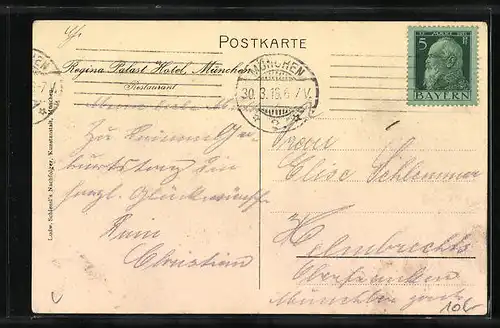 POSTKARTE
Regina Palast Hotel, München
Restaurant
MÜNCHEN
30. 3. 6-7 V.
* 2 *
5 Pf
BAYERN
Meine liebe
Zu Deinem Ge-
burtstag die
herzl. Glückwünsche
Dein
Christian
Frau
Elise Schlemmer
Helmbrechts
Oberfranken
Ludw. Schiestl's Nachfolger, Kunstanstalt, München.
10.-